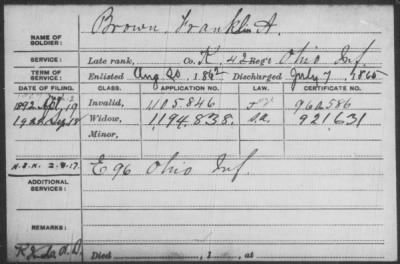 NAME OF SOLDIER: Brown, Franklin A.
SERVICE: Late rank, Co. K 42 Reg't Ohio Inf.
TERM OF SERVICE: Enlisted Aug 20, 1862 Discharged July 7, 1865
DATE OF FILING. CLASS. APPLICATION NO. LAW. CERTIFICATE NO.
1892 19 Invalid, 1105.846 962586
18 Widow, 1194.838. 921631
Minor,
2.8.17. E 96 Ohio Inf.
ADDITIONAL SERVICES:
REMARKS:
Died , 1 , at